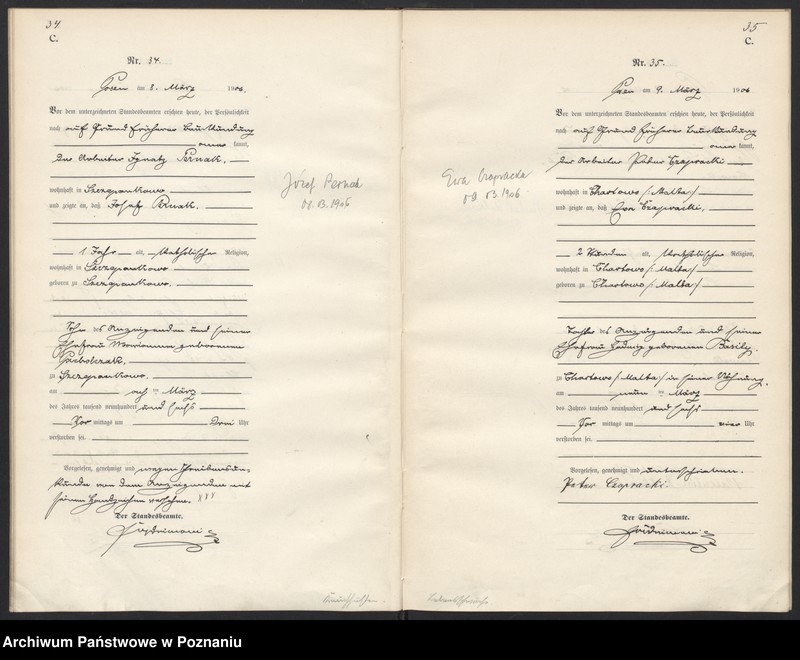 34.
C.
Nr. 34.
Posen am 8. März 1906.
Vor dem unterzeichneten Standesbeamten erschien heute, der Persönlichkeit
nach auf Grund früherer Beurkundung
kannt,
der Arbeiter Ignatz Pernak.
wohnhaft in Szczepankowo
und zeigte an, daß Josef Pernak.
1 Jahr alt, katholischer Religion,
wohnhaft in Szczepankowo
geboren zu Szczepankowo.
Sohn des Anzeigenden und seiner
Ehefrau Marianna geborenen
zu Szczepankowo.
am acht ten März
des Jahres tausend neunhundert und sechs
Vor mittags um drei Uhr
verstorben sei.
Vorgelesen, genehmigt und wegen Schreibensun-
kunde von dem Anzeigenden mit
seinem Handzeichen versehen. XXX
Der Standesbeamte.
Józef Pernak
08.03.1906
35
C.
Nr. 35.
Posen am 9. März 1906
Vor dem unterzeichneten Standesbeamten erschien heute, der Persönlichkeit
nach auf Grund früherer Beurkundung
kannt,
der Arbeiter Peter Czapracki
wohnhaft in Chartowo /:Malta:/
und zeigte an, daß Eva Czapracki,
2 Stunden alt, katholischer Religion,
wohnhaft in Chartowo /:Malta:/
geboren zu Chartowo /:Malta:/
Tochter des Anzeigenden und seiner
Ehefrau Hedwig geborenen
zu Chartowo /:Malta:/ in seiner Wohnung,
am neun ten März
des Jahres tausend neunhundert und sechs
Vor mittags um vier Uhr
verstorben sei.
Vorgelesen, genehmigt und unterschrieben.
Peter Czapracki.
Der Standesbeamte.
Ewa
09 03.1906
Lebensschwäche
Archiwum Państwowe w Poznaniu